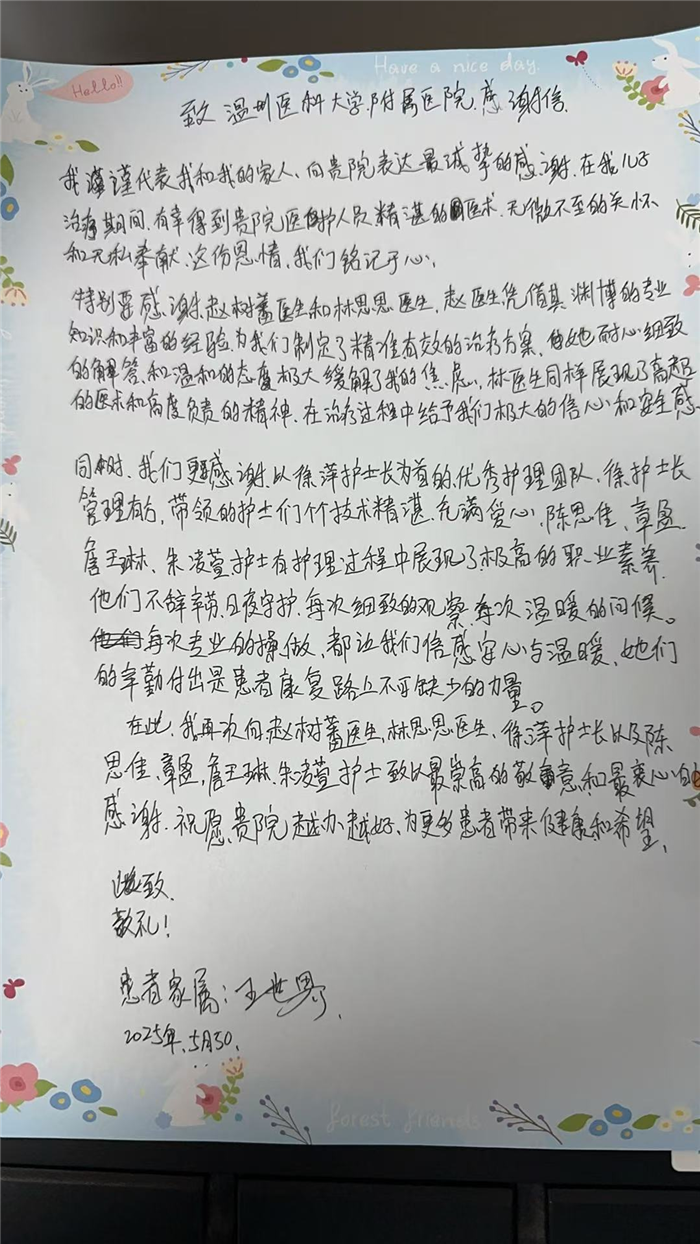 Have a nice day.
Hello!!
致温州医科大学附属医院感谢信
我谨代表我和我的家人、向贵院表达最诚挚的感谢.在我儿子
治疗期间.有幸得到贵院医护人员精湛的医术.无微不至的关怀
和无私奉献.这份恩情.我们铭记于心.
特别要感谢.赵树蕃医生和林思思医生.赵医生凭借其渊博的专业
知识和丰富的经验.为我们制定了精准有效的治疗方案.她耐心细致
的解答.和温和的态度极大缓解了我的焦虑.林医生同样展现了高超
的医术和高度负责的精神.在治疗过程中给予我们极大的信心和安全感.
同时.我们更感谢.以徐萍护士长为首的.优秀护理团队.徐护士长
管理有方,带领的护士们个个技术精湛.充满爱心.陈思佳、章盈
詹玉琳、朱凌萱护士有护理过程中展现了极高的职业素养.
他们不辞辛劳.日夜守护.每次细致的观察.每次温暖的问候。
每次专业的操做、都让我们倍感安心与温暖.她们
的辛勤付出是患者康复路上不可缺少的力量。
在此.我再次向.赵树蕃医生.林思思医生、徐萍护士长以及陈
思佳、章盈,詹玉琳.朱凌萱护士致以最崇高的敬意.和最衷心的
感谢.祝愿.贵院越办越好.为更多患者带来健康.和希望.
此致.
敬礼!
患者家属:王世
2025年.5月30.
forest friends